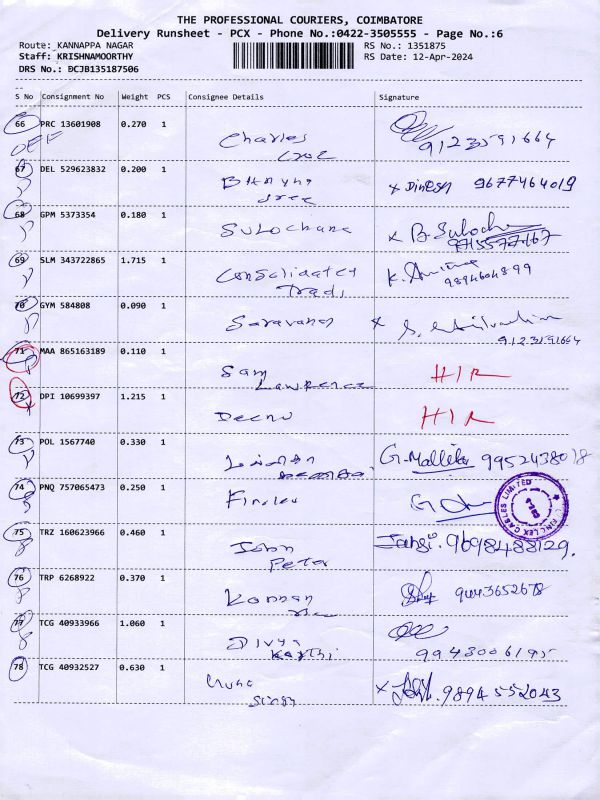 THE PROFESSIONAL COURIERS, COIMBATORE
Delivery Runsheet - PCX - Phone No.:0422-3505555 - Page No.:6
Route: KANNAPPA NAGAR RS No.: 1351875
Staff: KRISHNAMOORTHY RS Date: 12-Apr-2024
DRS No.: DCJB135187506
S No Consignment No Weight PCS Consignee Details Signature
66 PRC 13601908 0.270 1 Charles
9123591664
67 DEL 529623832 0.200 1
x Dinesh 9677464019
68 GPM 5373354 0.180 1 Sulochana
x B. Suloch
69 SLM 343722865 1.715 1 Consolidated
Trad,
9894604899
70 GYM 584808 0.090 1 Saravanan
9123591664
71 MAA 865163189 0.110 1 Sam
Lawrence
HIR
72 DPI 10699397 1.215 1 Deenu
HIR
73 POL 1567740 0.330 1
G. Mallika 9952438018
74 PNQ 757065473 0.250 1 Finolex
FINOLEX CABLES LIMITED
75 TRZ 160623966 0.460 1 John
Peter
Jansi. 9698488129.
76 TRP 6268922 0.370 1 Kannan
9443652678
77 TCG 40933966 1.060 1 Divya
Karthi
78 TCG 40932527 0.630 1
Singh
9894552043